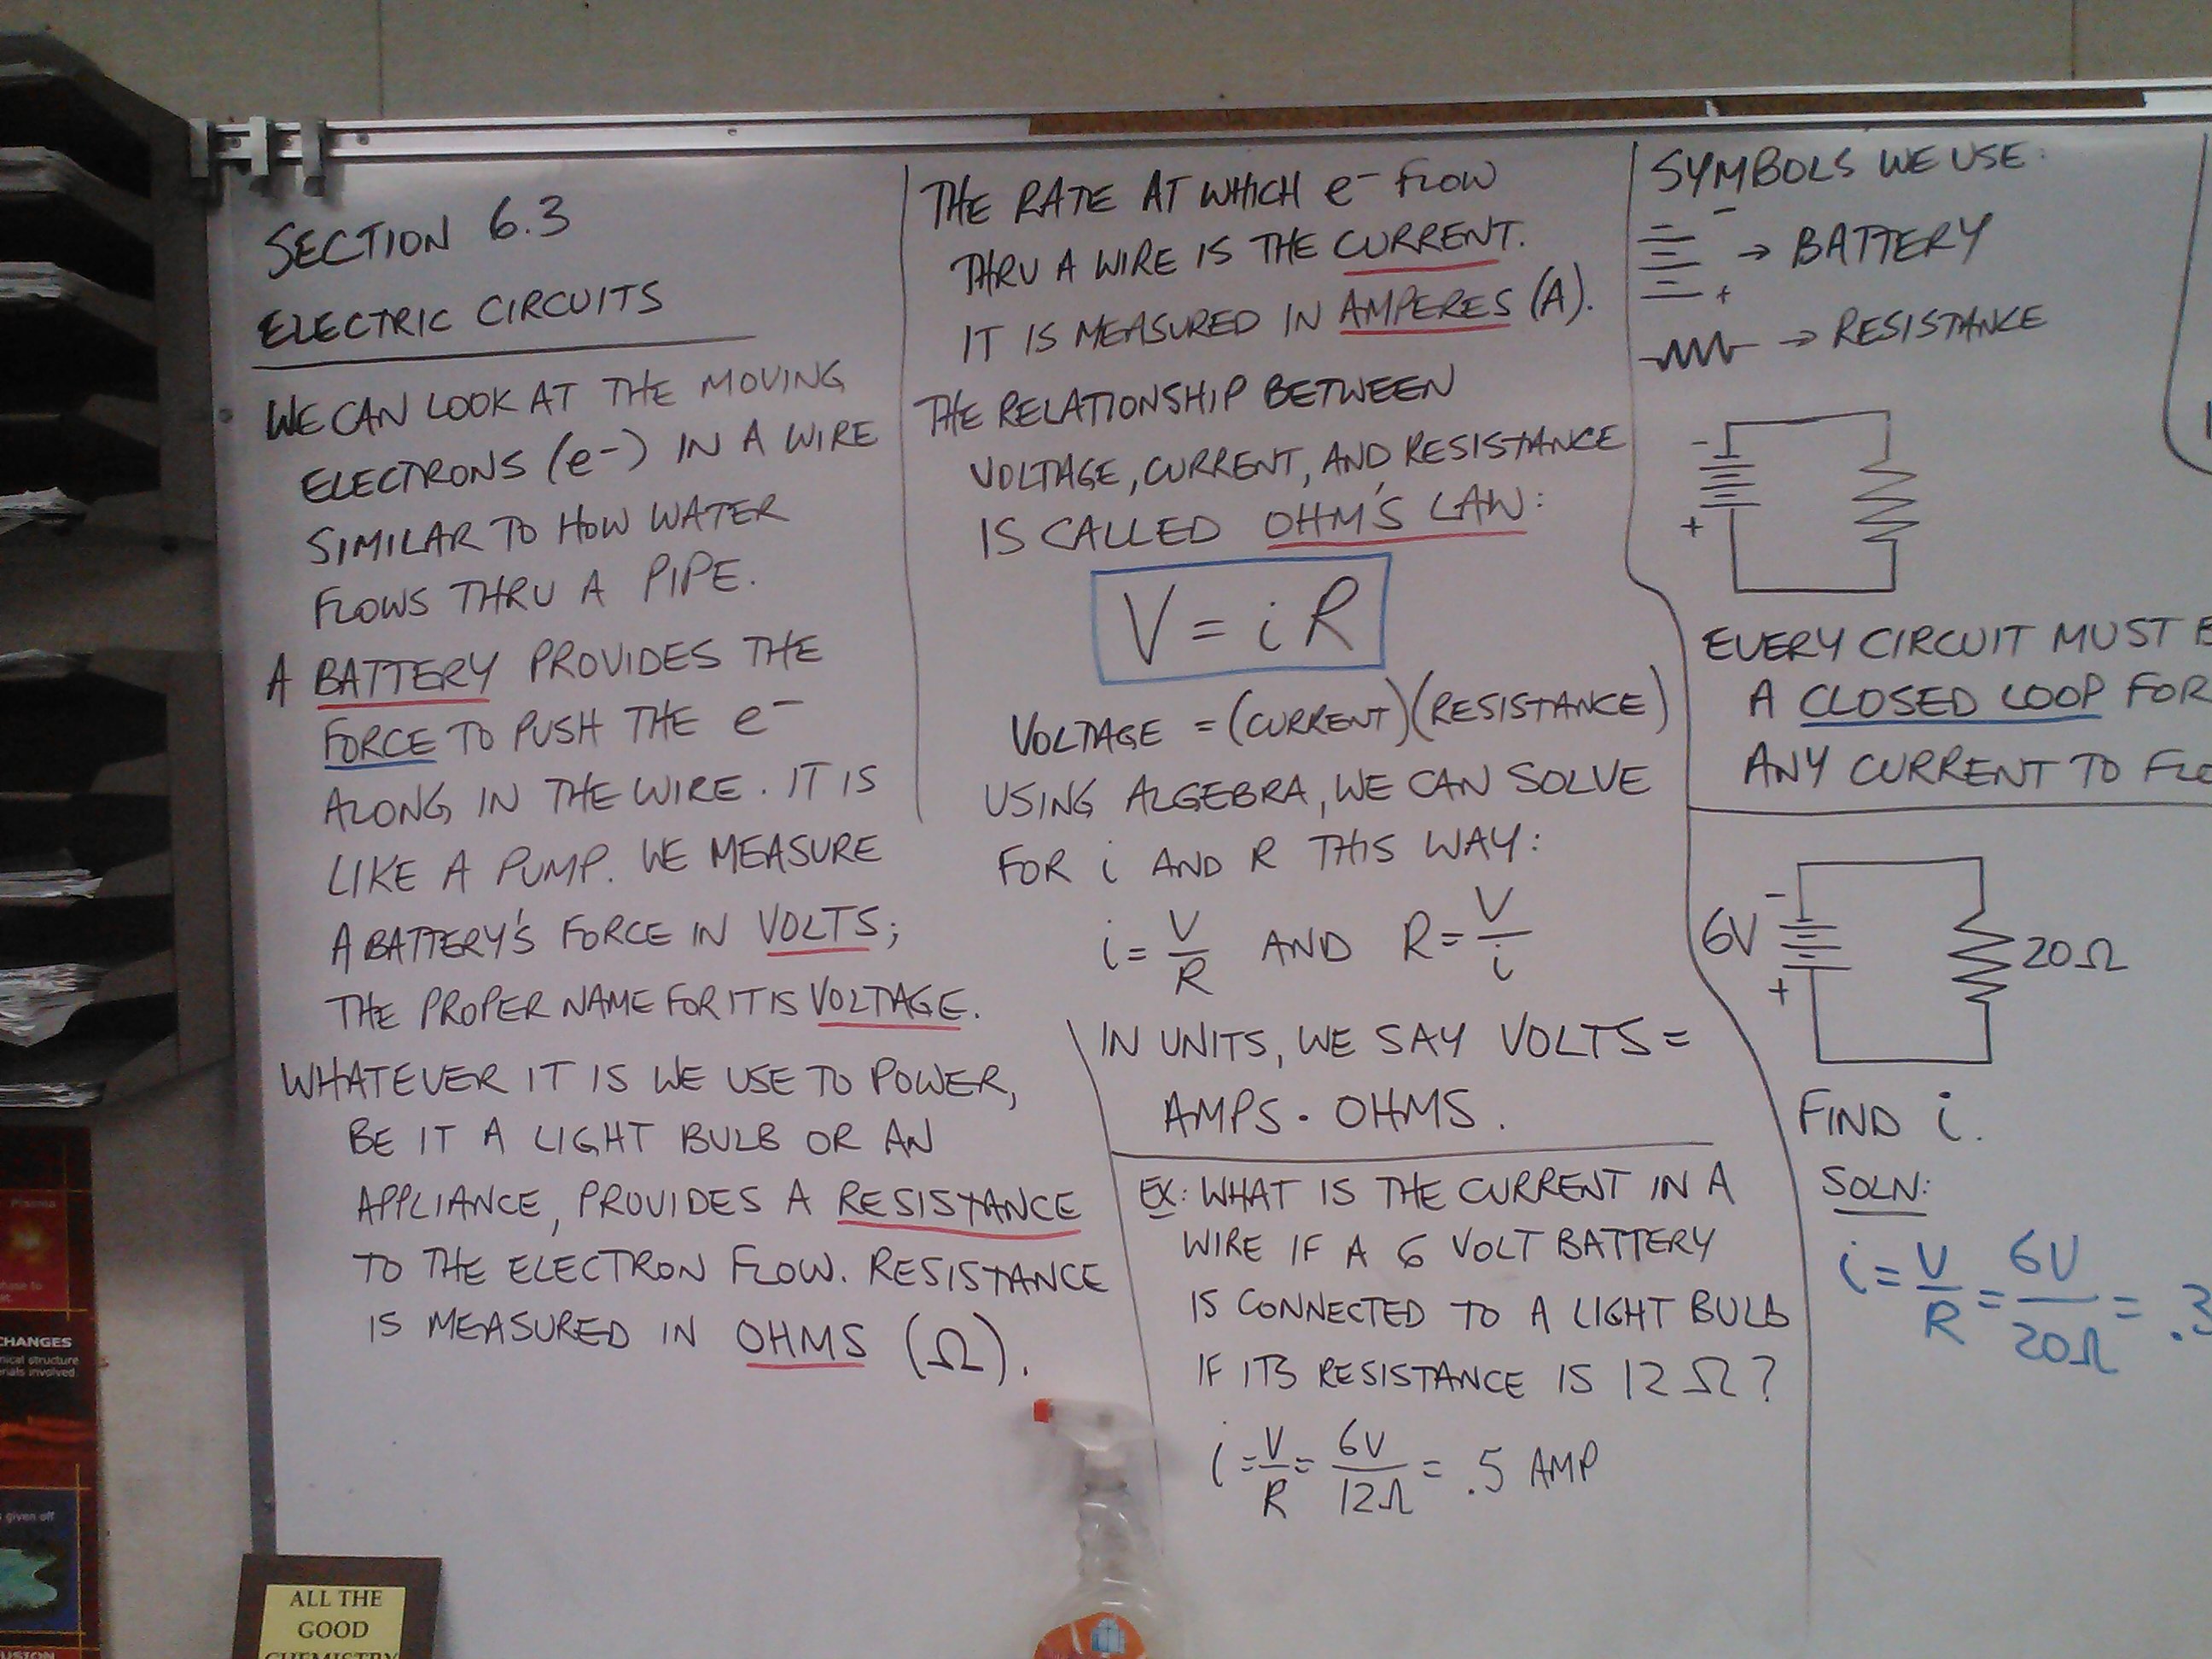 SECTION 6.3
ELECTRIC CIRCUITS
WE CAN LOOK AT THE MOVING
ELECTRONS (e-) IN A WIRE
SIMILAR TO HOW WATER
FLOWS THRU A PIPE.
A BATTERY PROVIDES THE
FORCE TO PUSH THE e-
ALONG IN THE WIRE. IT IS
LIKE A PUMP. WE MEASURE
A BATTERY'S FORCE IN VOLTS;
THE PROPER NAME FOR IT IS VOLTAGE.
WHATEVER IT IS WE USE TO POWER,
BE IT A LIGHT BULB OR AN
APPLIANCE, PROVIDES A RESISTANCE
TO THE ELECTRON FLOW. RESISTANCE
IS MEASURED IN OHMS (Ω).
THE RATE AT WHICH e- FLOW
THRU A WIRE IS THE CURRENT.
IT IS MEASURED IN AMPERES (A).
THE RELATIONSHIP BETWEEN
VOLTAGE, CURRENT, AND RESISTANCE
IS CALLED OHM'S LAW:
V = iR
VOLTAGE = (CURRENT)(RESISTANCE)
USING ALGEBRA, WE CAN SOLVE
FOR i AND R THIS WAY:
i = V/R AND R = V/i
IN UNITS, WE SAY VOLTS =
AMPS · OHMS.
EX: WHAT IS THE CURRENT IN A
WIRE IF A 6 VOLT BATTERY
IS CONNECTED TO A LIGHT BULB
IF ITS RESISTANCE IS 12 Ω?
i = V/R = 6V/12Ω = .5 AMP
SYMBOLS WE USE:
-
→ BATTERY
+
→ RESISTANCE
-
+
EVERY CIRCUIT MUST B
A CLOSED LOOP FOR
ANY CURRENT TO FLO
-
6V 20Ω
+
FIND i.
SOLN:
i = V/R = 6V/20Ω = .3
Plasma
CHANGES
ical structure
rials involved
given off
USION
ALL THE
GOOD
CHEMISTRY